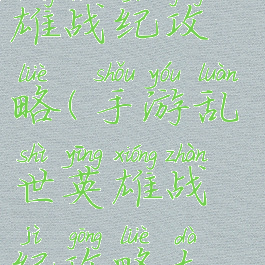 雄战纪攻
lüè shǒu yóu luàn
略(手游乱
shì yīng xióng zhàn
世英雄战
jì gōng lüè dà
纪攻略大